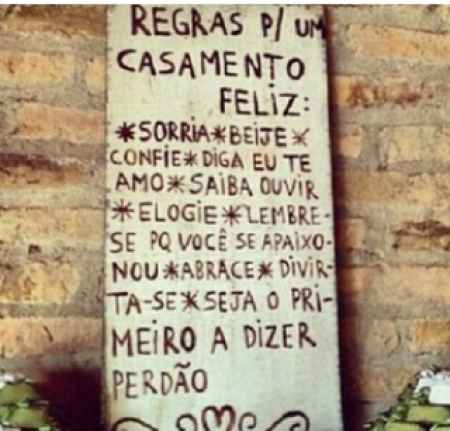 REGRAS P/ UM
CASAMENTO
FELIZ:
*SORRIA*BEIJE*
CONFIE*DIGA EU TE
AMO*SAIBA OUVIR
*ELOGIE*LEMBRE-
SE PQ VOCÊ SE APAIXO-
NOU*ABRACE*DIVIR-
TA-SE*SEJA O PRI-
MEIRO A DIZER
PERDÃO